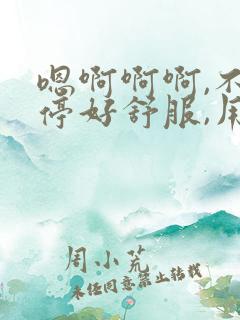 嗯啊啊啊,不
停好舒服,用
周小荒
未经同意禁止转载